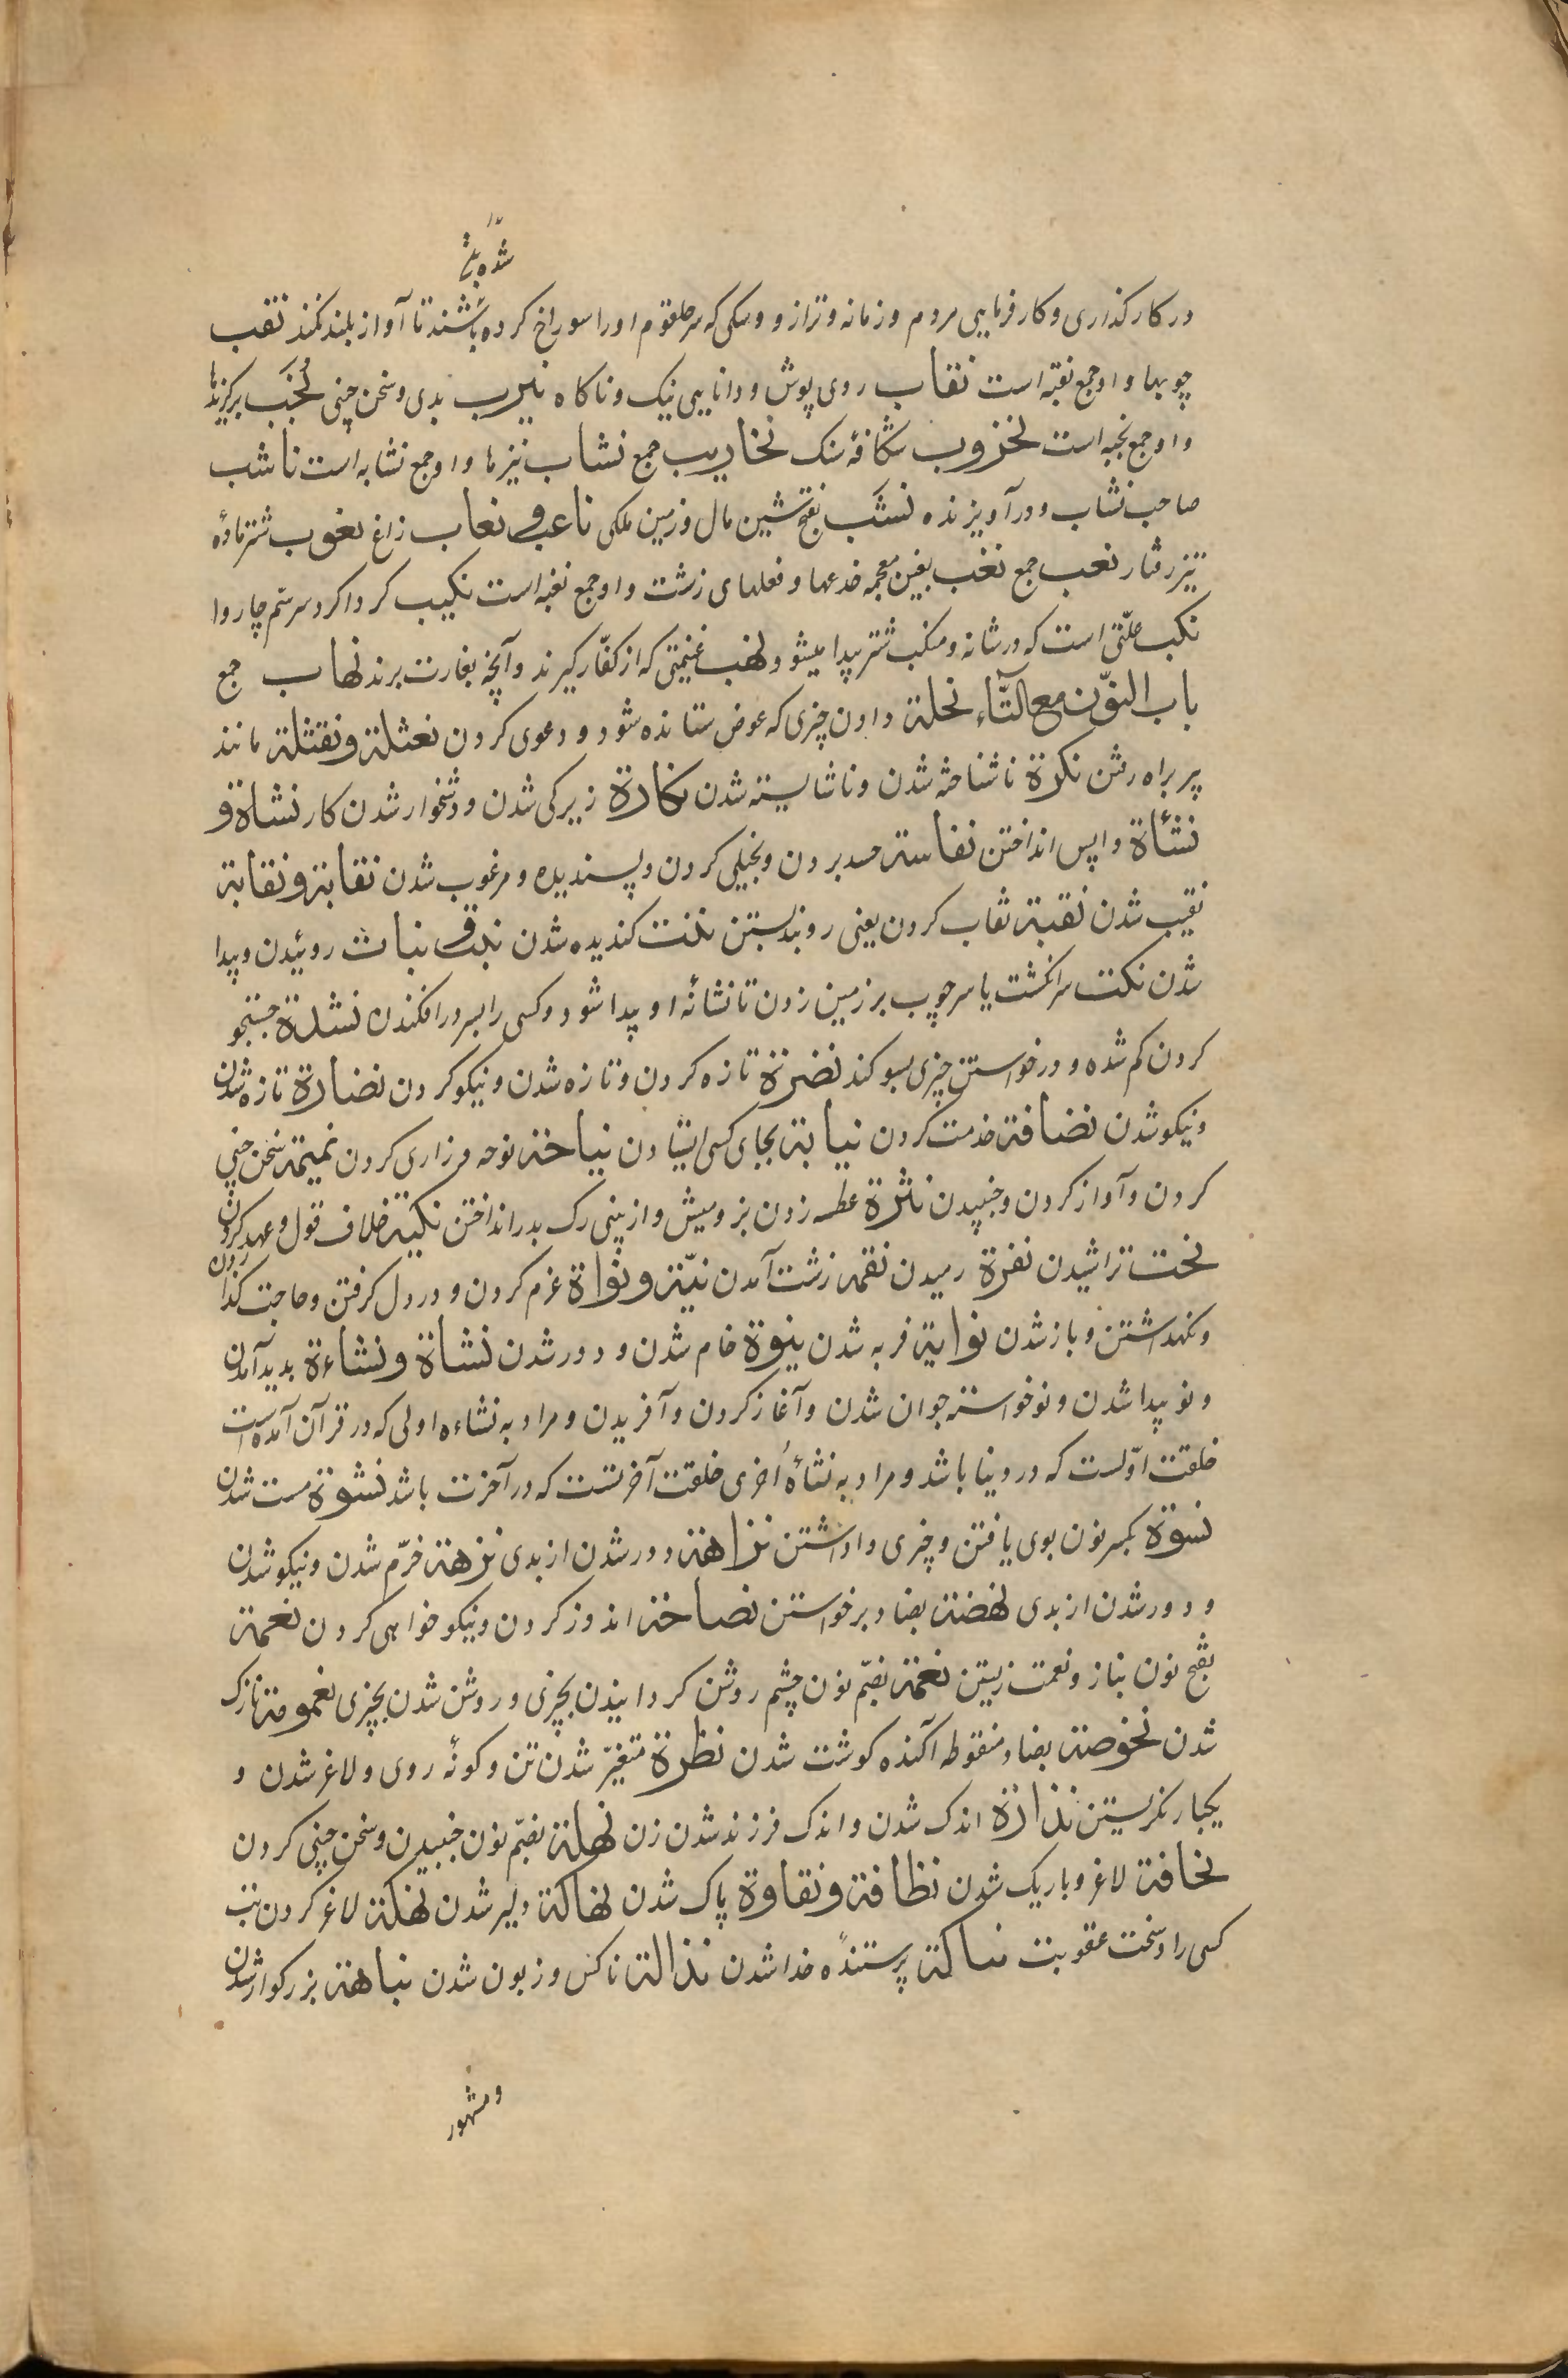 شده بلی
در کارکذاری و کارفرمایی مردم و زمانه و ترازو و سکی که سر حلقوم او را سوراخ کرده باشند تا آواز بلند نکند نقب
چوبها و او جمع نقبه است نقاب روی پوش و دانایی نیک و ناکاه نیرب بدی و سخن چینی نُخَب برکزیدها
و او جمع نخبه است نخروب شکافهٔ سنک نخاریب جمع نشاب تیرها و او جمع نشابه است ناشب
صاحب نشاب و در آویزنده نشَب بفتح شین مال و زمین ملکی ناعب و نعاب زاغ نعوب شتر مادهٔ
تیز رفتار نعب جمع نغب بغین معجمه خدعها و فعلهای زشت و او جمع نغبه است نکیب کرداکرد سر سّم چاروا
نکب علّتی است که در شانه و منکب شتر پیدا میشود نهب غنیمتی که از کفّار کیرند و آنچه بغارت برند نهاب جمع
باب النوّن مع التّاء نحلة دادن چیزی که عوض ستانده شود و دعوی کردن نعثلة و نقثلة مانند
پیر براه رفتن نکرة ناشناخته شدن و ناشایسته شدن نکارة زیرکی شدن و دشخوار شدن کار نشاة و
نسٔاة واپس انداختن نفاسة حسد بردن و بخیلی کردن و پسندیده و مرغوب شدن نقابة و نقابة
نقیب شدن نقبة نقاب کردن یعنی روبند بستن نتنت کندیده شدن نبت و نبات روییدن و پیدا
شدن نکت سر انکشت یا سر چوب بر زمین زدن تا نشانهٔ او پیدا شود و کسی را بسر در افکندن نشدة جستجو
کردن کم شده و در خواستن چیزی بسوکند نضرة تازه کردن و تازه شدن و نیکو کردن نضارة تازه شدن
و نیکو شدن نضافة خدمت کردن نیابة بجای کسی ایستادن نیاحة نوحه و زاری کردن نمیمة سخن چینی
کردن و آواز کردن و جنبیدن نثرة عطسه زدن بز و میش و از بینی رک بدر انداختن نکیثة خلاف قول و عهد کردن
نحت تراشیدن نفرة رمیدن نقمة زشت آمدن نیّة و نواة عزم کردن و در دل کرفتن و حاجت کذاردن
و نکهداشتن و باز شدن نوایة فربه شدن ینوة خام شدن و دور شدن نشاة و نشاءة بدید آمدن
و نو پیدا شدن و نوخواسته جوان شدن و آغاز کردن و آفریدن و مراد به نشاءه اولی که در قرآن آمده است
خلقت اوّلست که در دنیا باشد و مراد به نشأهٔ اُخری خلقت آخرتست که در آخرت باشد نشوة مست شدن
نسوة بکسر نون بوی یافتن و چیزی واداشتن نزاهة دور شدن از بدی نزهة خرّم شدن و نیکو شدن
و دور شدن از بدی نهضت بضاد برخواستن نصاحة اندوز کردن و نیکو خواهی کردن نعمة
بفتح نون بناز و نعمت زیستن نعمة بضّم نون چشم روشن کردانیدن بچیزی و روشن شدن بچیزی نعمومة نازک
شدن نحوضة بضاد منقوطه آکنده کوشت شدن نظرة متغیّر شدن تن و کونهٔ روی و لاغر شدن و
یکبار نکریستن نذارة اندک شدن و اندک فرزند شدن زن نهلة بضّم نون جنبیدن و سخن چینی کردن
نحافة لاغر و باریک شدن نظافة و نقاوة پاک شدن نهاکة دلیر شدن نهکة لاغر کردن تب
کسی را و سخت عقوبت نساکة پرستندهٔ خدا شدن نذالة ناکس و زبون شدن نباهة بزرکوار شدن
و مشهور